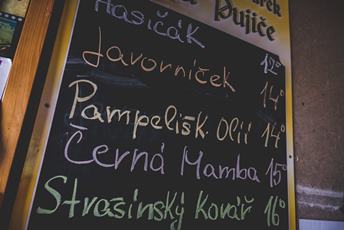 Pujiče
Hasičák 12°
Javorníček 14°
Pampelišk. Olii 14°
Černá Mamba 15°
Strašinský Kovář 16°